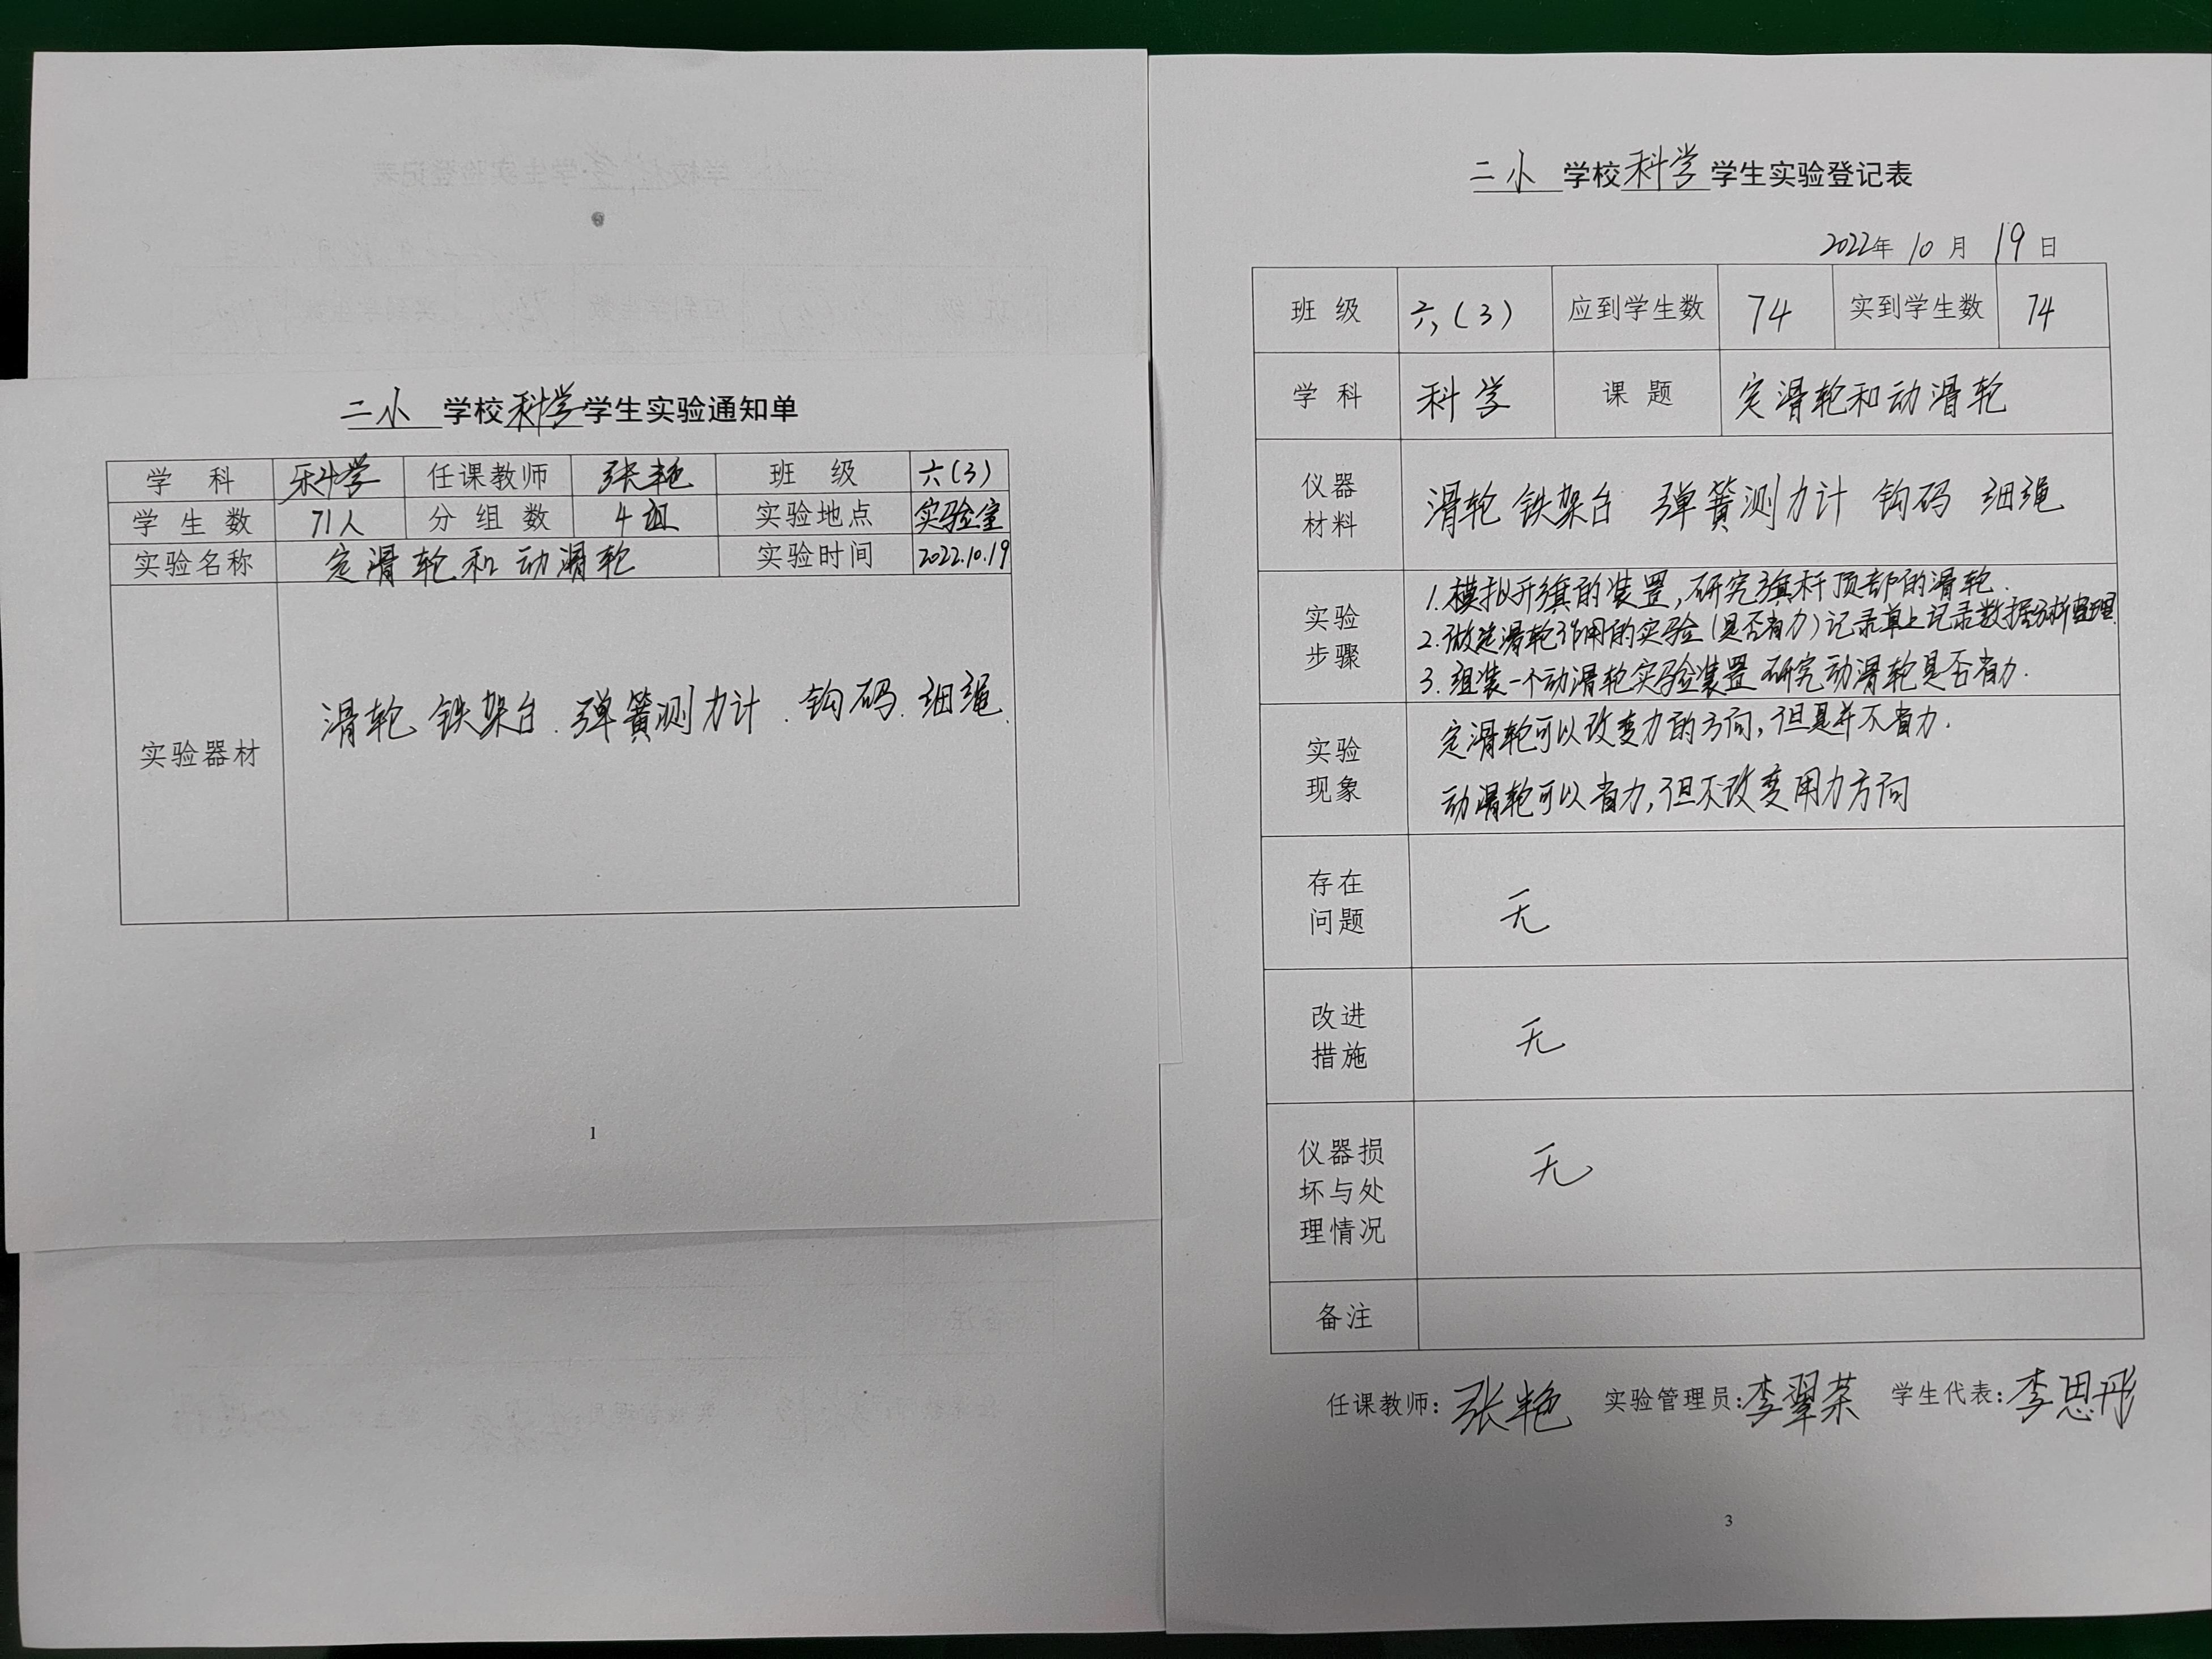 二小 学校科学学生实验通知单
学 科 科学 任课教师 张艳 班 级 六(3)
学 生 数 71人 分 组 数 4组 实验地点 实验室
实验名称 定滑轮和动滑轮 实验时间 2022.10.19
实验器材 滑轮 铁架台.弹簧测力计.钩码.细绳.
1
二小 学校科学学生实验登记表
2022年 10月 19日
班 级 六,(3) 应到学生数 74 实到学生数 74
学 科 科学 课 题 定滑轮和动滑轮
仪器
材料
滑轮 铁架台 弹簧测力计 钩码 细绳
实验
步骤
1.模拟升旗的装置,研究旗杆顶部的滑轮.
2.做定滑轮作用的实验(是否省力)记录单上记录数据分析整理.
3.组装一个动滑轮实验装置 研究动滑轮是否省力.
实验
现象
定滑轮可以改变力的方向,但是并不省力.
动滑轮可以省力,但不改变用力方向
存在
问题
无
改进
措施
无
仪器损
坏与处
理情况
无
备注
任课教师:张艳 实验管理员:李翠荣 学生代表:李思彤
3